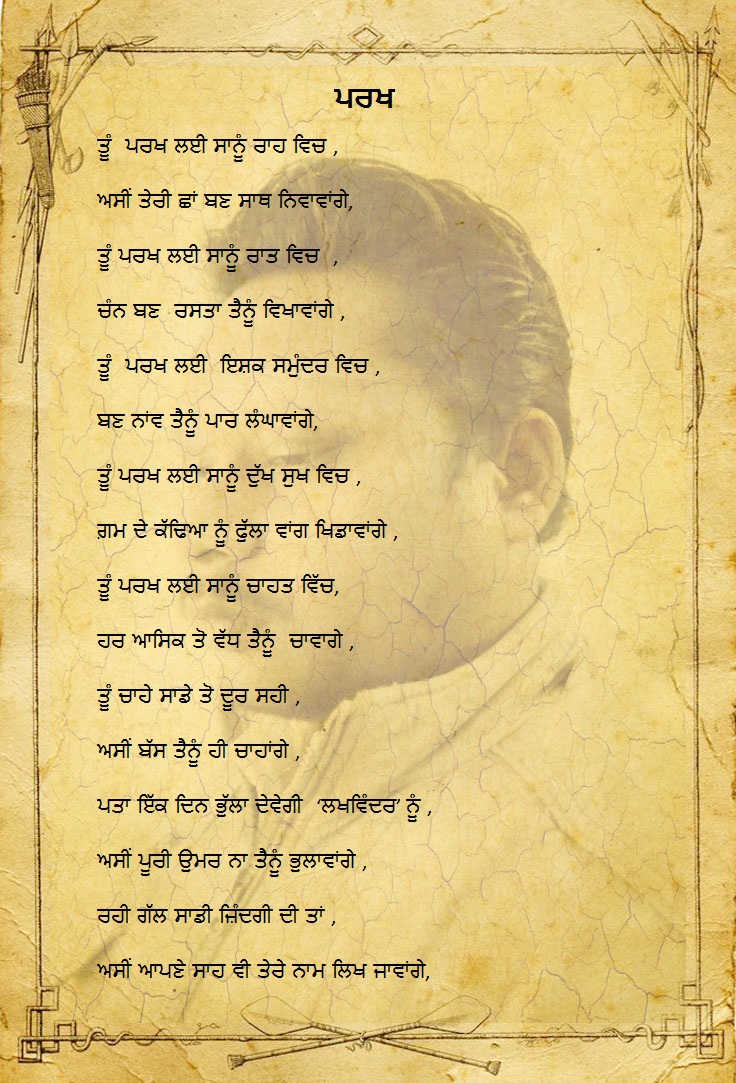 ਪਰਖ
ਤੂੰ ਪਰਖ ਲਈ ਸਾਨੂੰ ਰਾਹ ਵਿਚ ,
ਅਸੀਂ ਤੇਰੀ ਛਾਂ ਬਣ ਸਾਥ ਨਿਵਾਵਾਂਗੇ,
ਤੂੰ ਪਰਖ ਲਈ ਸਾਨੂੰ ਰਾਤ ਵਿਚ ,
ਚੰਨ ਬਣ ਰਸਤਾ ਤੈਨੂੰ ਵਿਖਾਵਾਂਗੇ ,
ਤੂੰ ਪਰਖ ਲਈ ਇਸ਼ਕ ਸਮੁੰਦਰ ਵਿਚ ,
ਬਣ ਨਾਂਵ ਤੈਨੂੰ ਪਾਰ ਲੰਘਾਵਾਂਗੇ,
ਤੂੰ ਪਰਖ ਲਈ ਸਾਨੂੰ ਦੁੱਖ ਸੁਖ ਵਿਚ ,
ਗ਼ਮ ਦੇ ਕੱਢਿਆ ਨੂੰ ਫੁੱਲਾ ਵਾਂਗ ਖਿਡਾਵਾਂਗੇ ,
ਤੂੰ ਪਰਖ ਲਈ ਸਾਨੂੰ ਚਾਹਤ ਵਿੱਚ,
ਹਰ ਆਸਿਕ ਤੋ ਵੱਧ ਤੈਨੂੰ ਚਾਵਾਗੇ ,
ਤੂੰ ਚਾਹੇ ਸਾਡੇ ਤੋ ਦੂਰ ਸਹੀ ,
ਅਸੀਂ ਬੱਸ ਤੈਨੂੰ ਹੀ ਚਾਹਾਂਗੇ ,
ਪਤਾ ਇੱਕ ਦਿਨ ਭੁੱਲਾ ਦੇਵੇਗੀ ‘ਲਖਵਿੰਦਰ’ ਨੂੰ ,
ਅਸੀਂ ਪੂਰੀ ਉਮਰ ਨਾ ਤੈਨੂੰ ਭੁਲਾਵਾਂਗੇ ,
ਰਹੀ ਗੱਲ ਸਾਡੀ ਜ਼ਿੰਦਗੀ ਦੀ ਤਾਂ ,
ਅਸੀਂ ਆਪਣੇ ਸਾਹ ਵੀ ਤੇਰੇ ਨਾਮ ਲਿਖ ਜਾਵਾਂਗੇ,